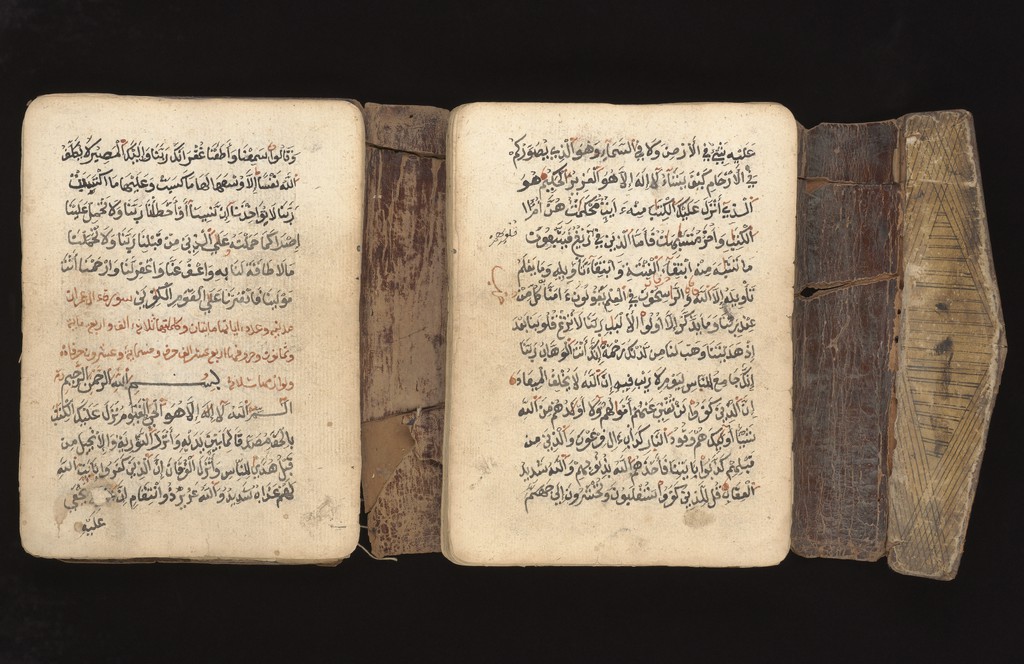 وقالوا سمعنا وأطعنا غفرانك ربنا وإليك المصير لا يكلف
الله نفسا إلا وسعها لها ما كسبت وعليها ما اكتسبت
ربنا لا تؤاخذنا إن نسينا أو أخطأنا ربنا ولا تحمل علينا
إصرا كما حملته على الذين من قبلنا ربنا ولا تحملنا
ما لا طاقة لنا به واعف عنا واغفر لنا وارحمنا أنت
مولينا فانصرنا على القوم الكفرين سورة ال عمران
مدنيه وعدد اياتها مايتان وكلمتها ثلاثة الف واربع مايه
وثمانون وحروفها اربع عشر الف حرف وخمسماية وعشرون حرفا
بسم الله الرحمن الرحيم
الم الله لا إله إلا هو الحي القيوم نزل عليك الكتب
بالحق مصدقا لما بين يديه وأنزل التورية والإنجيل من
قبل هدى للناس وأنزل الفرقان إن الذين كفروا بايت الله
لهم عذاب شديد والله عزيز ذو انتقام إن يخفى
عليه
عليه شيء في الأرض ولا في السماء وهو الذي يصوركم
في الأرحام كيف يشاء لا إله إلا هو العزيز الحكيم هو
الذي أنزل عليك الكتب منه ءايت محكمت هن أم
الكتب وأخر متشبهت فأما الذين في زيغ فيتبعون
قلوبهم
ما تشبه منه ابتغاء الفتنة وابتغاء تأويله وما يعلم
تأويله إلا الله والراسخون في العلم يقولون ءامنا كل من
عند ربنا وما يذكر إلا أولوا الألبب ربنا لا تزغ قلوبنا بعد
إذ هديتنا وهب لنا من لدنك رحمة إنك أنت الوهاب ربنا
إنك جامع الناس ليوم لا ريب فيه إن الله لا يخلف الميعاد
إن الذين كفروا لن تغني عنهم أموالهم ولا أولدهم من الله
شيئا وأولئك هم وقود النار كدأب ءال فرعون والذين من
قبلهم كذبوا بايتنا فأخذهم الله بذنوبهم والله شديد
العقاب قل للذين كفروا ستغلبون وتحشرون إلى جهنم